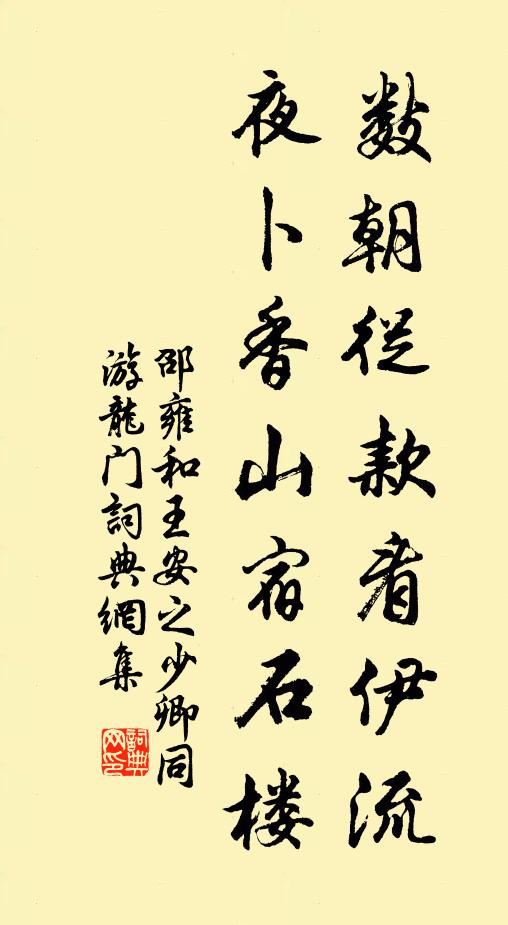 数朝从款看伊流
夜卜香山宿石楼
邵雍和王安之少卿同
游龍门詞典網集
詞典网印